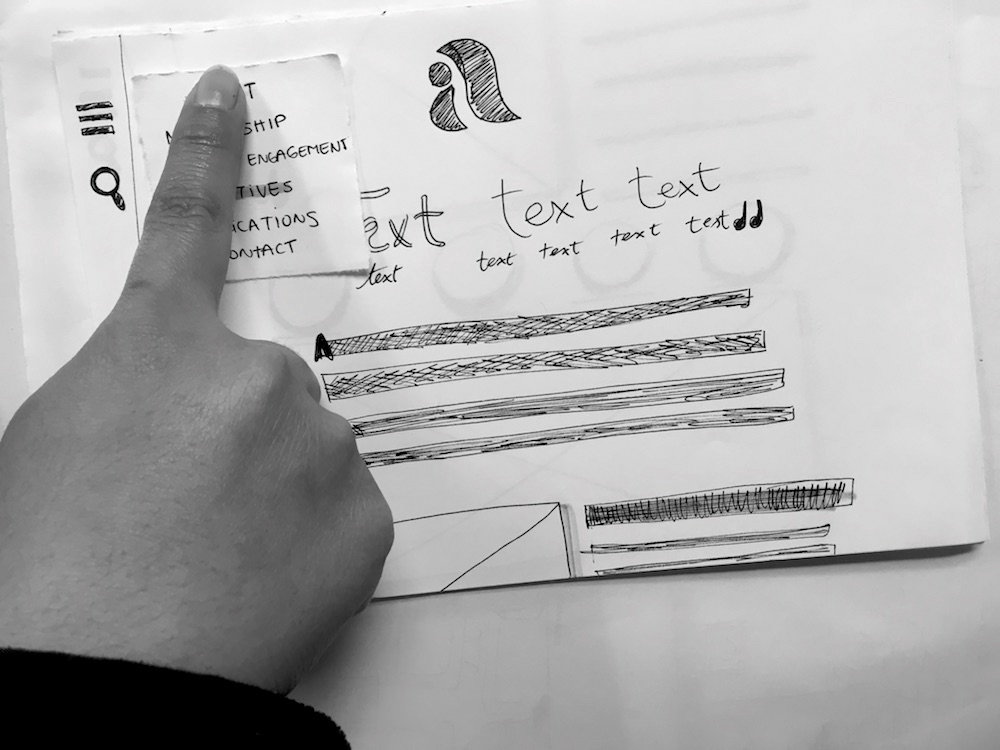 T
SHIP
ENGAGEMENT
TIVES
ICATIONS
ONTACT
Text text text
text text text text test